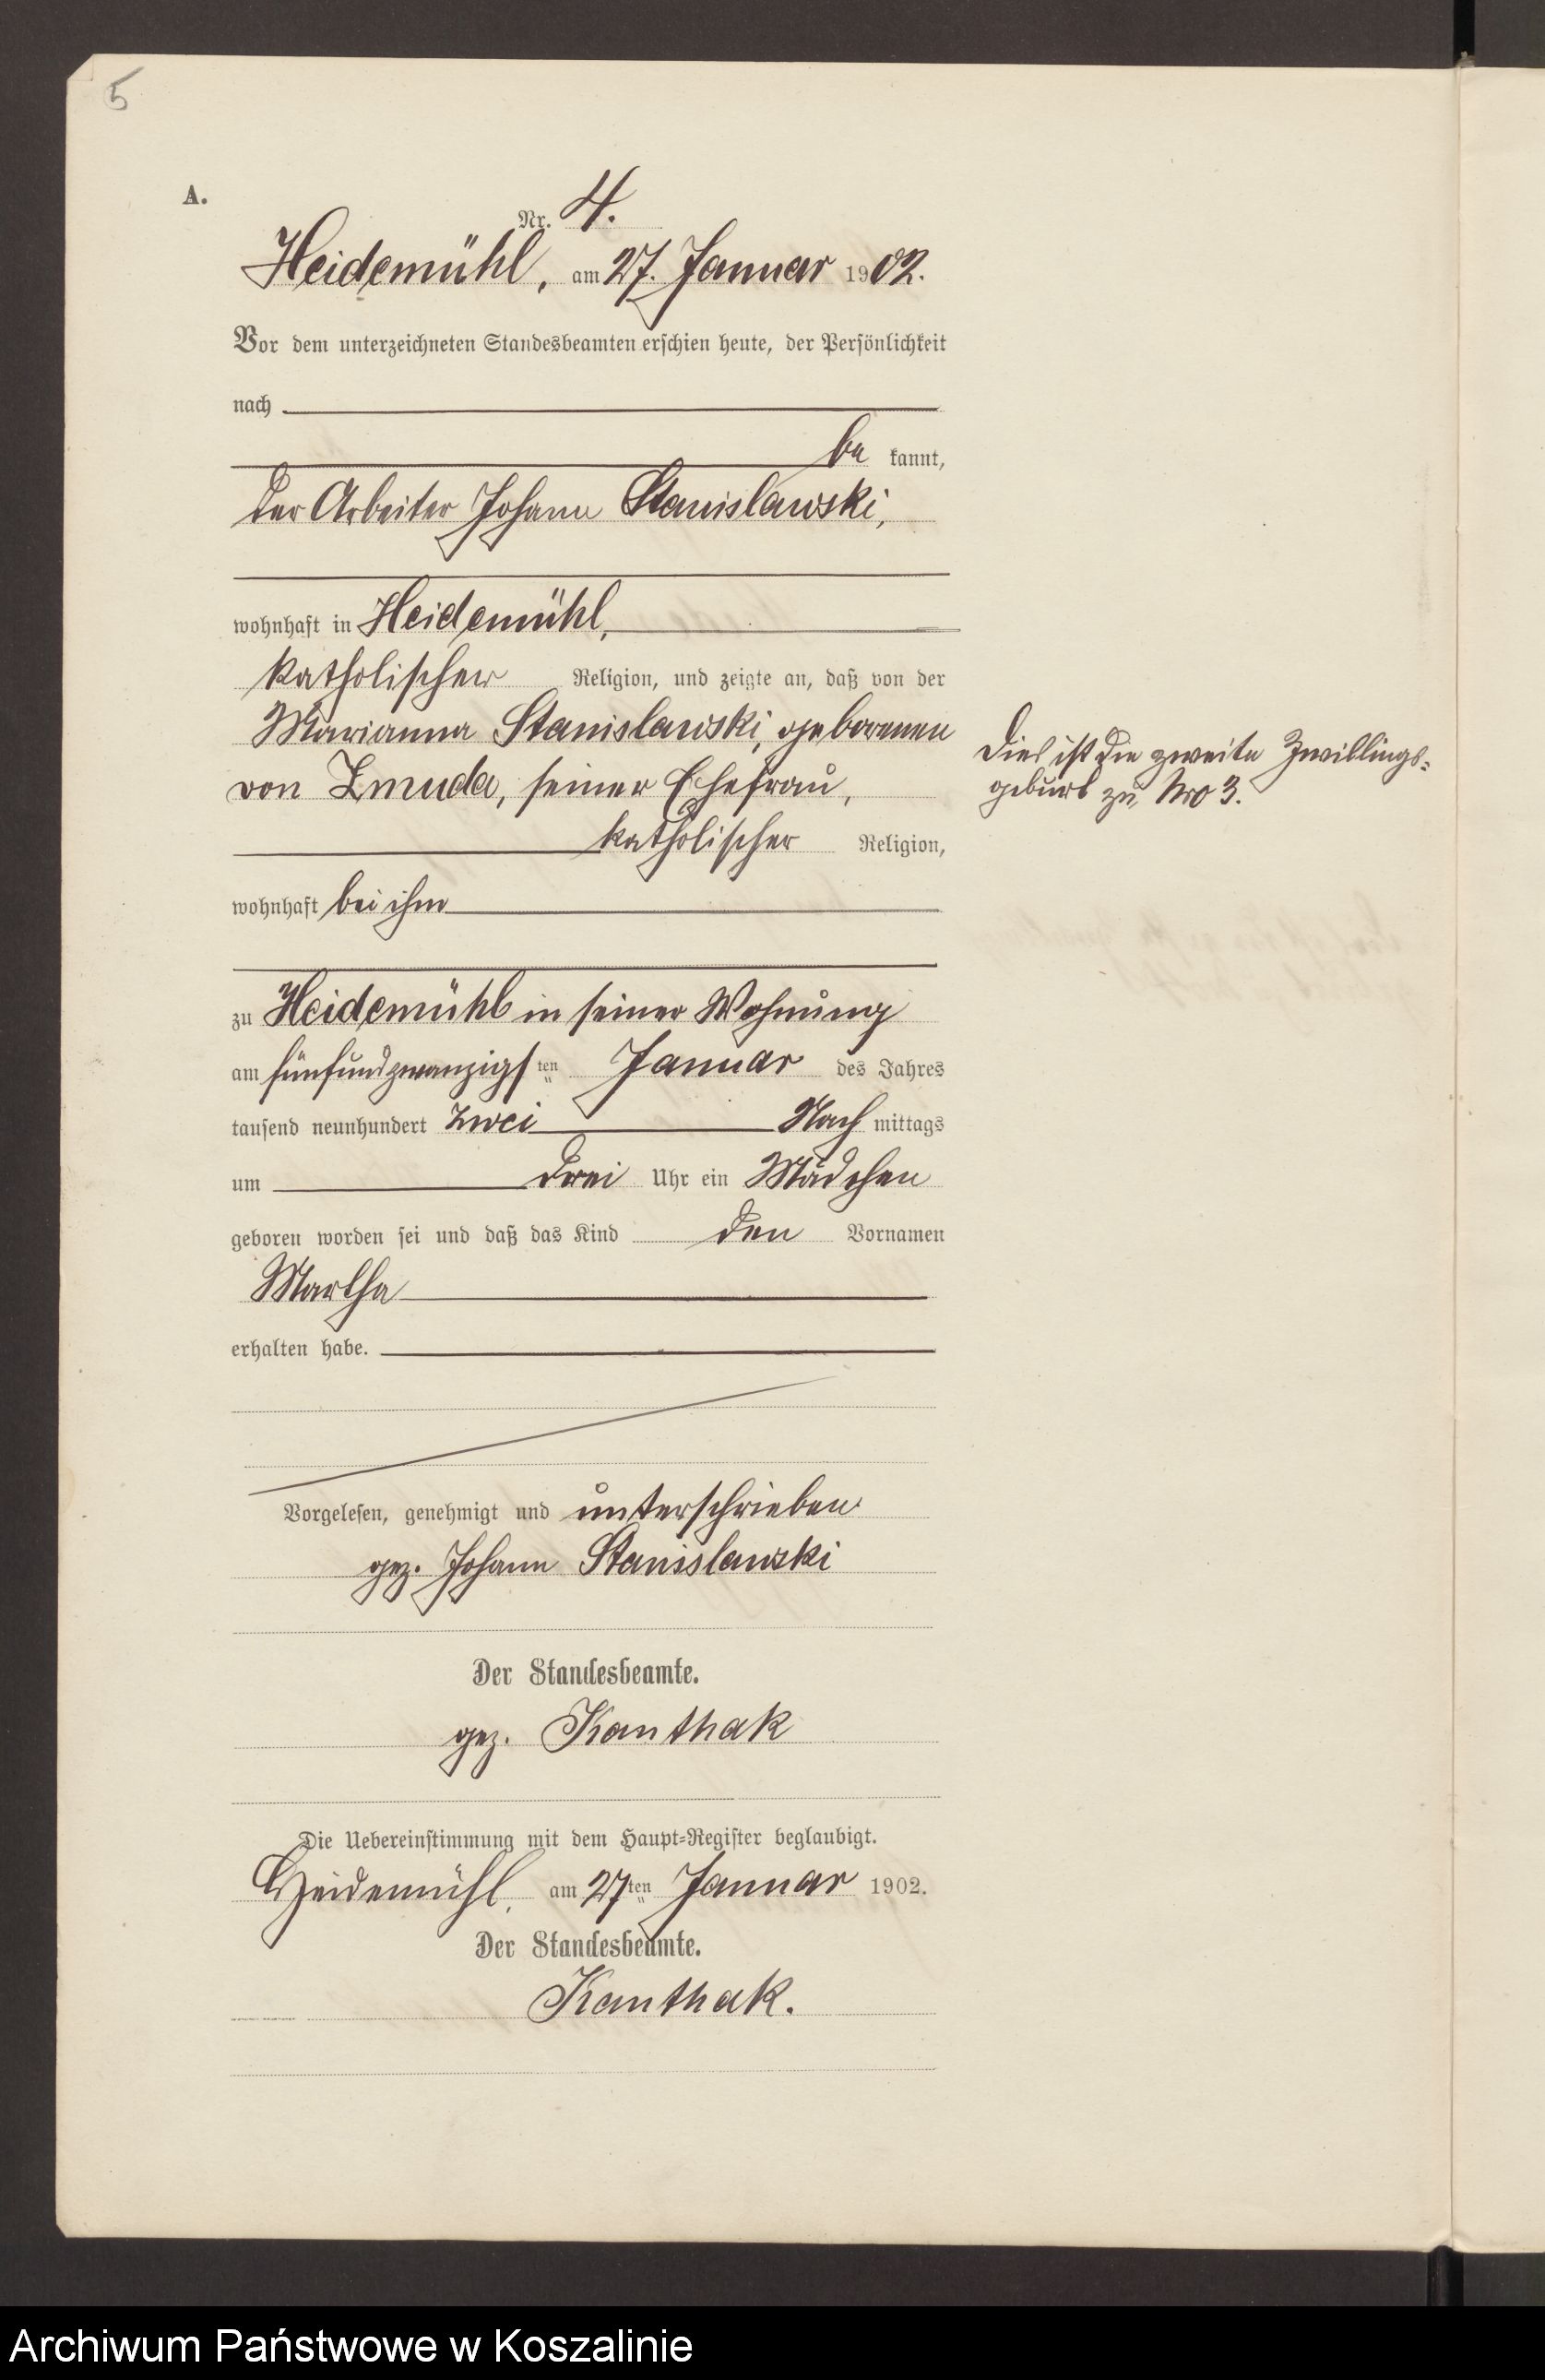 5
A.
Nr. 4.
Heidemühl, am 27. Januar 1902.
Vor dem unterzeichneten Standesbeamten erschien heute, der Persönlichkeit
nach
be kannt,
der Arbeiter Johann Stanislawski,
wohnhaft in Heidemühl,
katholischer Religion, und zeigte an, daß von der
Marianna Stanislawski, geborenen
von Zmuda, seiner Ehefrau,
katholischer Religion,
wohnhaft bei ihm
zu Heidemühl in seiner Wohnung
am fünfundzwanzigsten Januar des Jahres
tausend neunhundert zwei Nach mittags
um drei Uhr ein Mädchen
geboren worden sei und daß das Kind den Vornamen
Martha
erhalten habe.
Dies ist die zweite Zwillings-
geburt zu Nro 3.
Vorgelesen, genehmigt und unterschrieben
gez. Johann Stanislawski
Der Standesbeamte.
gez. Kanthak
Die Uebereinstimmung mit dem Haupt-Register beglaubigt.
Heidemühl, am 27ten Januar 1902.
Der Standesbeamte.
Kanthak.
Archiwum Państwowe w Koszalinie